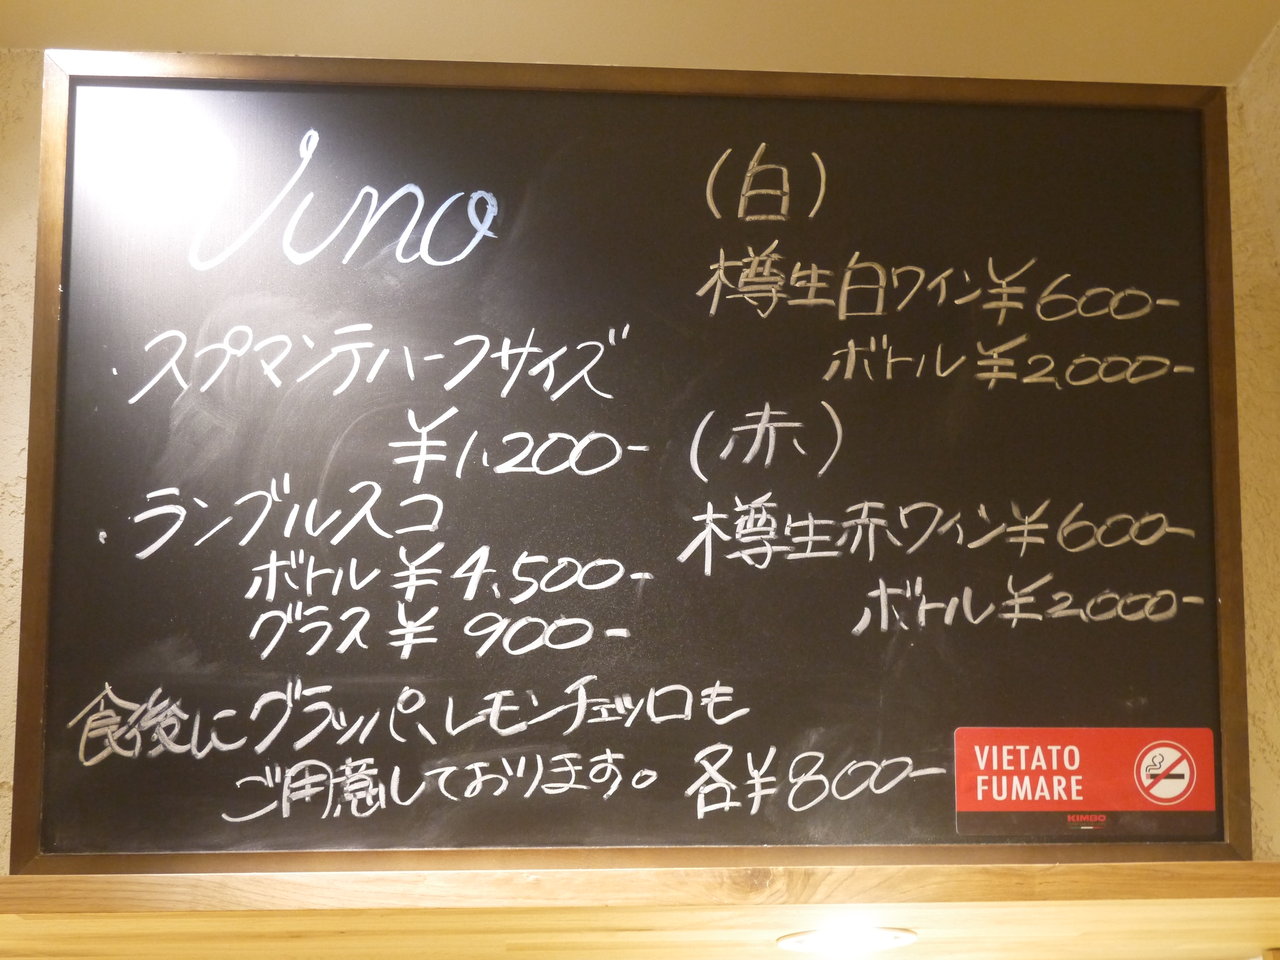 Vino
・スプマンテハーフサイズ
¥1,200-
・ランブルスコ
ボトル ¥4,500-
グラス ¥ 900-
食後にグラッパ、レモンチェッロも
ご用意しております。 各¥800-
(白)
樽生白ワイン¥600-
ボトル ¥2,000-
(赤)
樽生赤ワイン¥600-
ボトル ¥2,000-
VIETATO
FUMARE
KIMBO